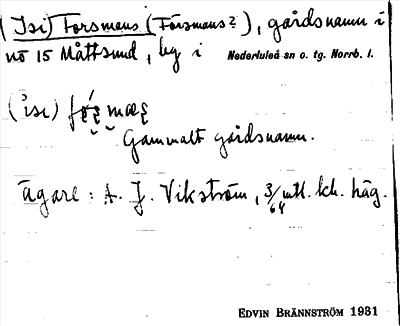 (Isi) Forsmans (Försmans?), gårdsnamn i
no 15 Måttsund, by i Nederluleå sn o. tg. Norrb. l.
(isi)
Gammalt gårdsnamn.
Ägare: A. J. Vikström, 3/64 mtl. kh. häg.
EDVIN BRÄNNSTRÖM 1931